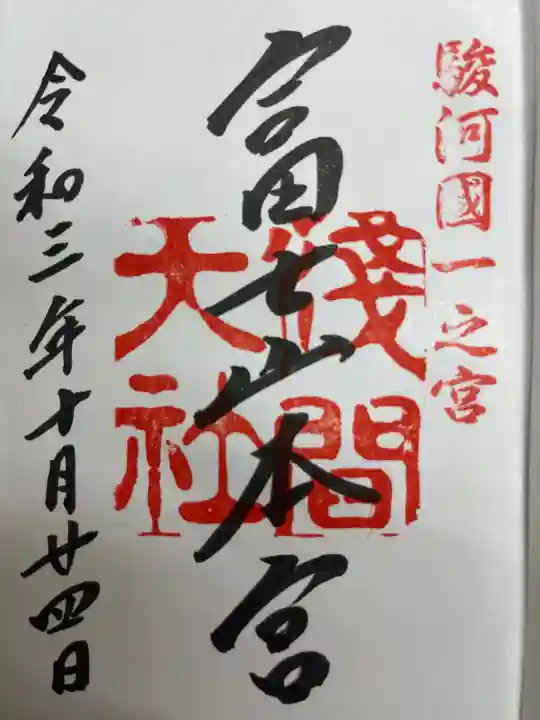 駿河國一之宮
富士山本宮
淺間
大社
令和三年十月廿四日